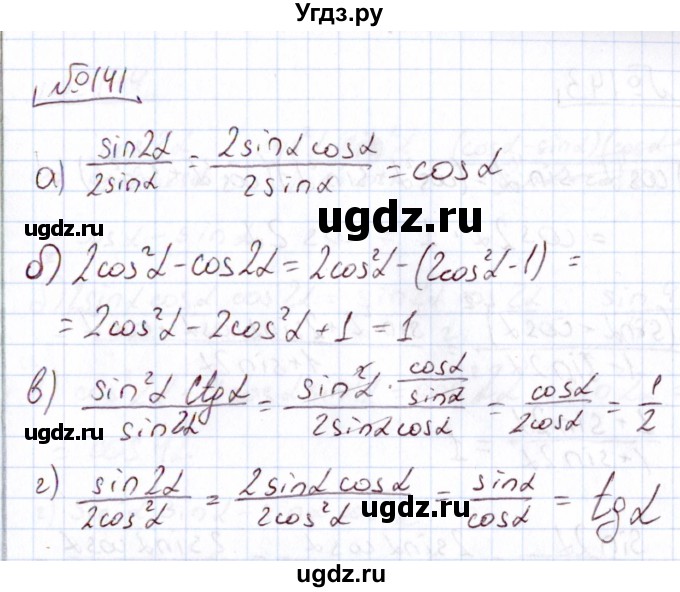 Угдз.ру
№141
а) sin2α/2sinα = 2sinα cosα/2sinα = cosα
ugdz.ru
ugdz.ru
б) 2cos²α - cos2α = 2cos²α - (2cos²α - 1) =
= 2cos²α - 2cos²α + 1 = 1
в) sin²α ctgα/sin2α = sin²α · cosα/sinα/2sinα cosα = cosα/2cosα = 1/2
ugdz.ru
г) sin2α/2cos²α = 2sinα cosα/2cos²α = sinα/cosα = tgα
ugdz.ru
ugdz.ru